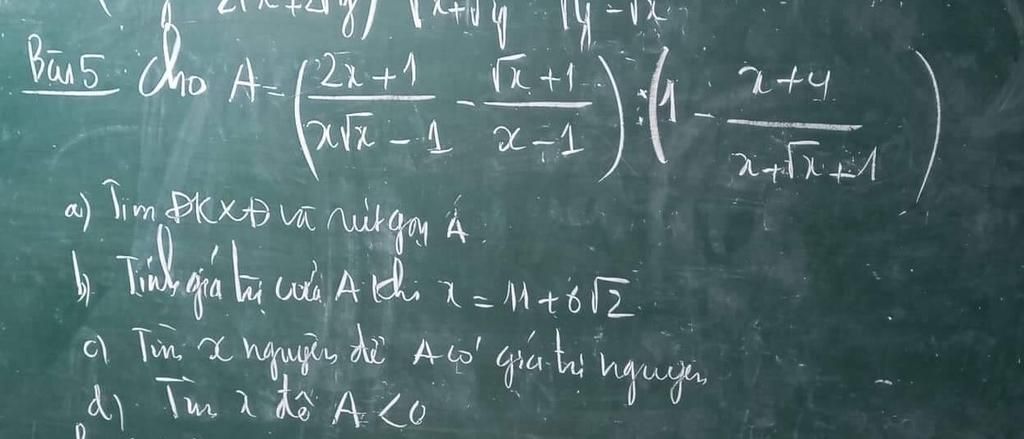 2(x+2√y) √x+√y √y-√x
Bài 5. Cho A = (2x+1/x√x-1 - √x+1/x-1) : (1 - x+4/x+√x+1)
a) Tìm ĐKXĐ và rút gọn A.
b) Tính giá trị của A khi x = 11+6√2
c) Tìm x nguyên để A có giá trị nguyên
d) Tìm x để A<0